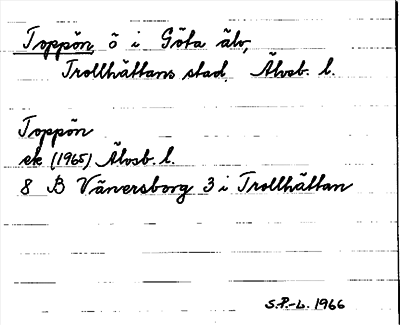 Toppön, ö i Göta älv,
Trollhättans stad. Älvsb. l.
Toppön
ek (1965) Älvsb. l.
8 B Vänersborg 3 i Trollhättan
S.P.-L. 1966